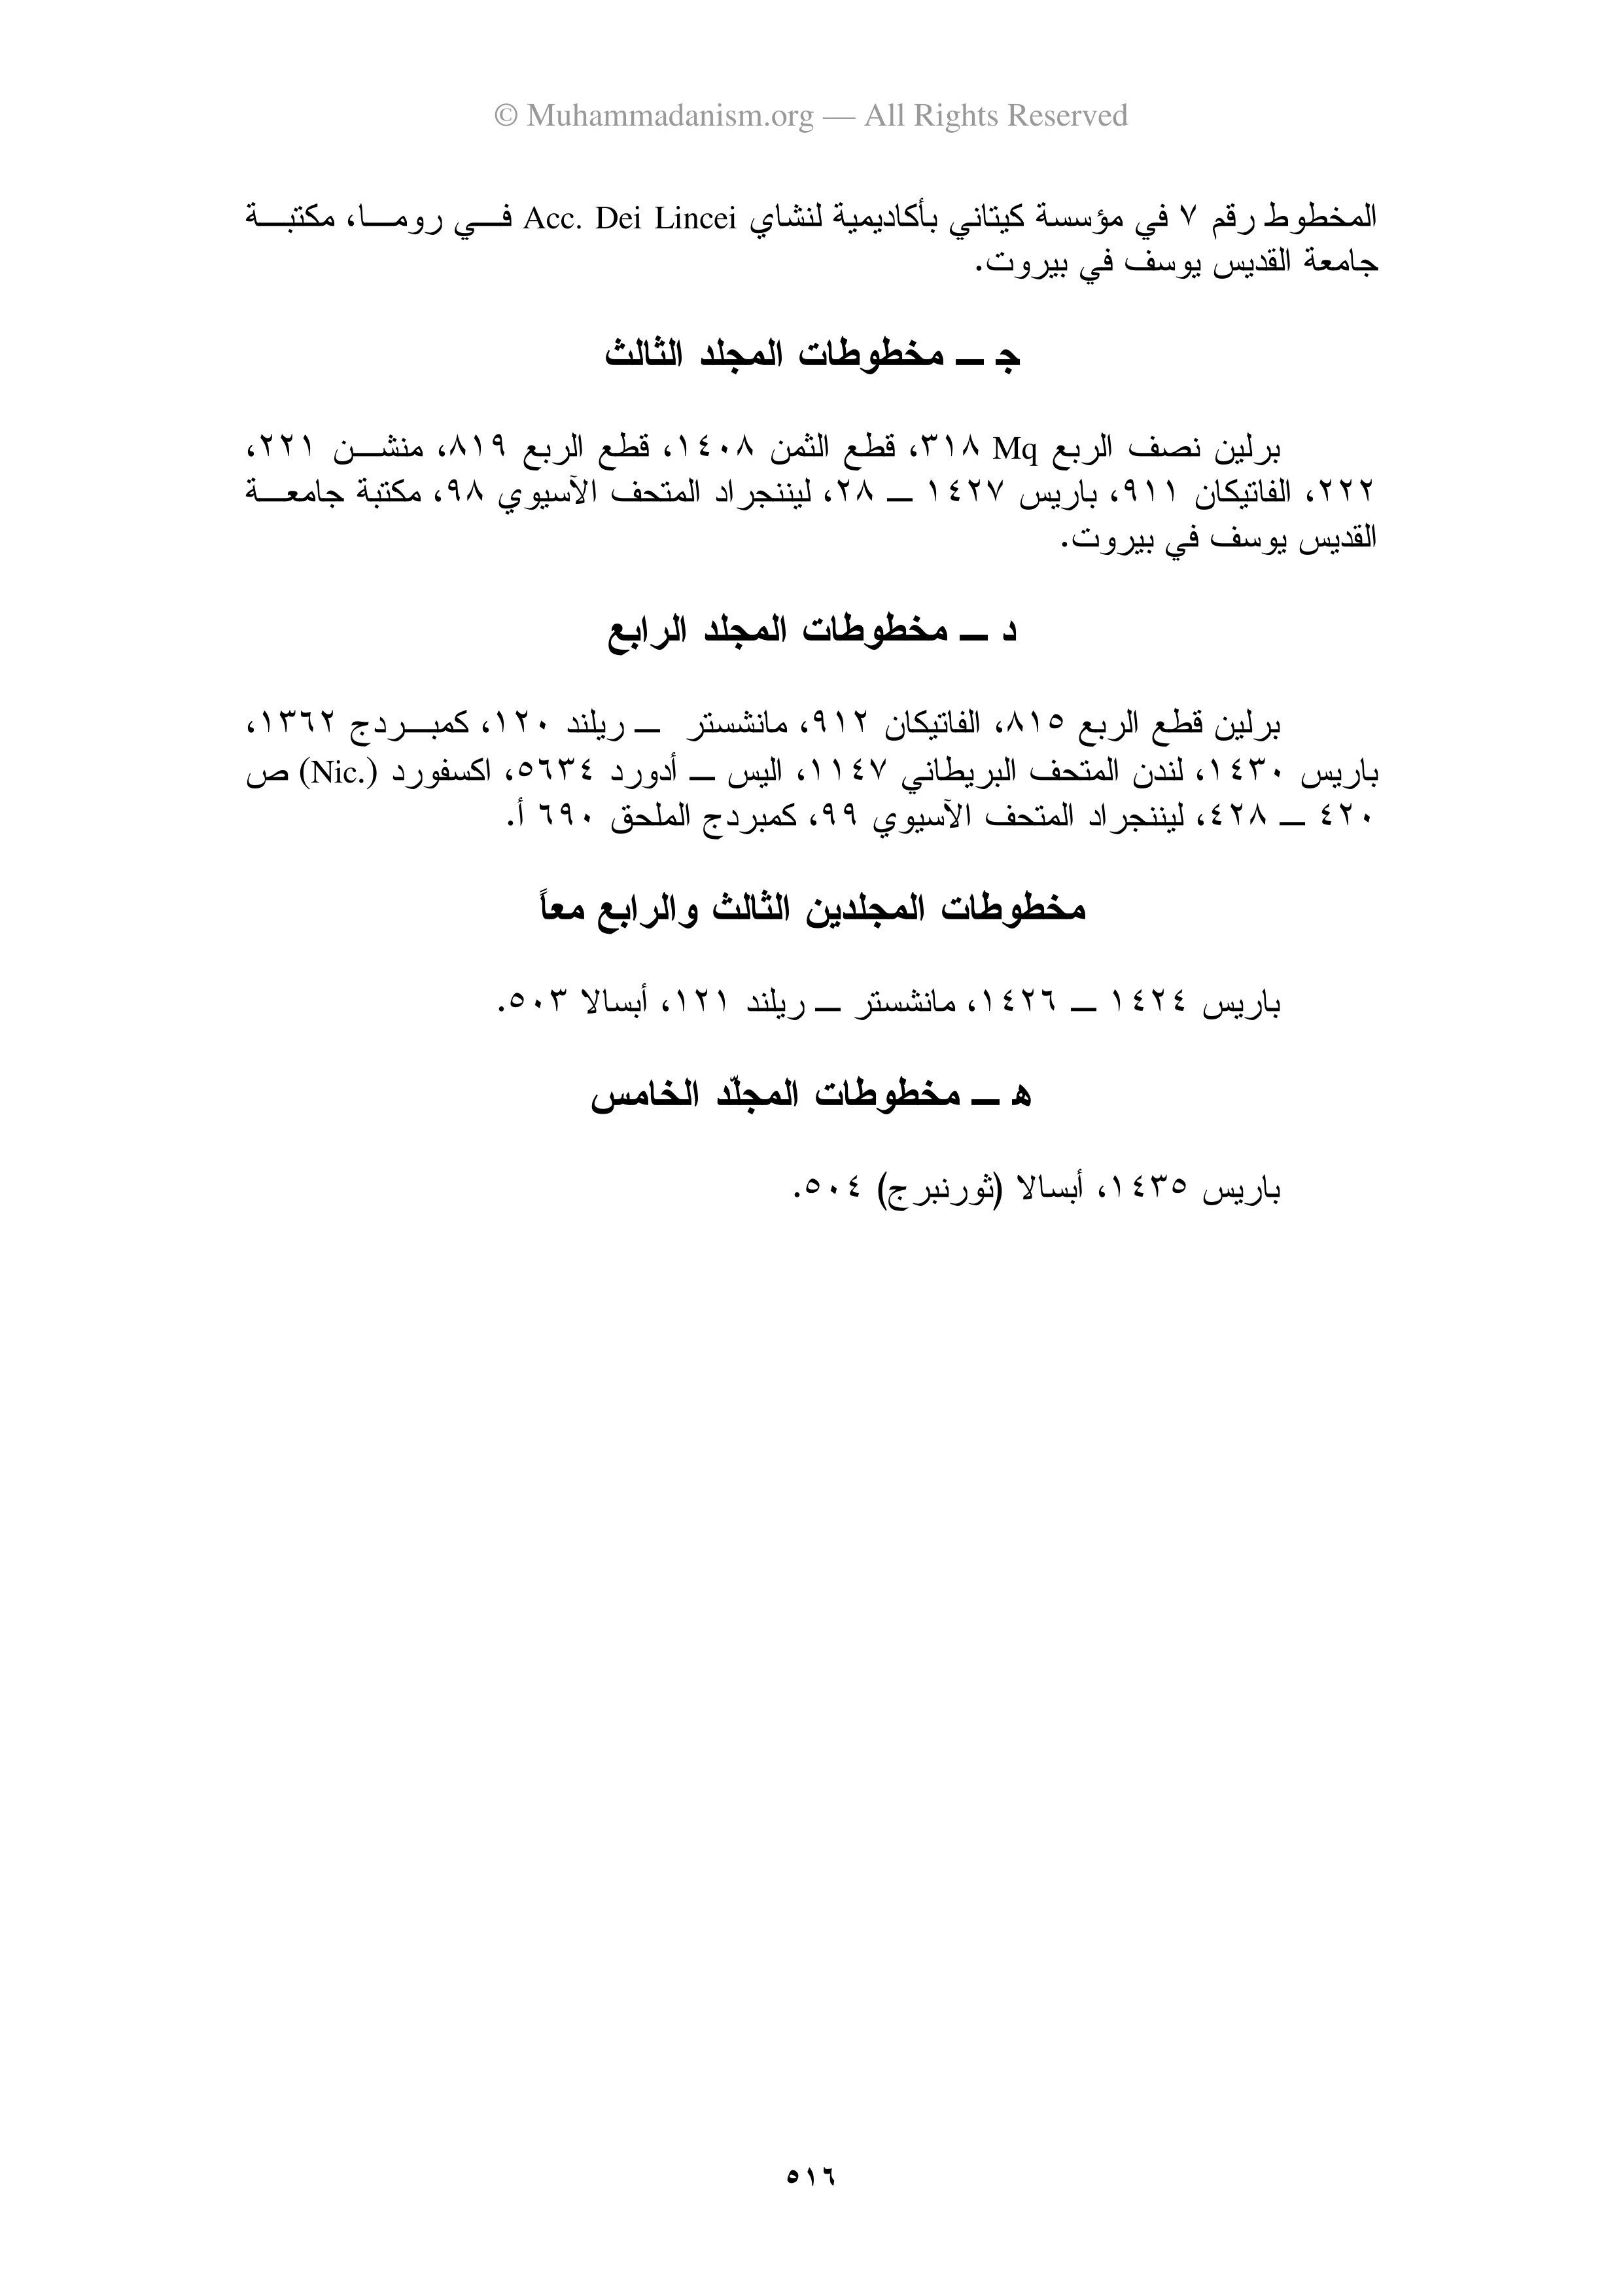 © Muhammadanism.org — All Rights Reserved
المخطوط رقم ٧ في مؤسسة كيتاني بأكاديمية لنشاي Acc. Dei Lincei فـــي رومـــا، مكتبـــة
جامعة القديس يوسف في بيروت.
جـ ـــ مخطوطات المجلد الثالث
برلين نصف الربع Mq ٣١٨، قطع الثمن ١٤٠٨، قطع الربع ٨١٩، منشـــن ٢٢١،
٢٢٢، الفاتيكان ٩١١، باريس ١٤٢٧ ـــ ٢٨، ليننجراد المتحف الآسيوي ٩٨، مكتبة جامعـــة
القديس يوسف في بيروت.
د ـــ مخطوطات المجلد الرابع
برلين قطع الربع ٨١٥، الفاتيكان ٩١٢، مانشستر ـــ ريلند ١٢٠، كمبـــردج ١٣٦٢،
باريس ١٤٣٠، لندن المتحف البريطاني ١١٤٧، اليس ـــ أدورد ٥٦٣٤، اكسفورد (Nic.) ص
٤٢٠ ـــ ٤٢٨، ليننجراد المتحف الآسيوي ٩٩، كمبردج الملحق ٦٩٠ أ.
مخطوطات المجلدين الثالث والرابع معاً
باريس ١٤٢٤ ـــ ١٤٢٦، مانشستر ـــ ريلند ١٢١، أبسالا ٥٠٣.
هـ ـــ مخطوطات المجلّد الخامس
باريس ١٤٣٥، أبسالا (ثورنبرج) ٥٠٤.
٥١٦